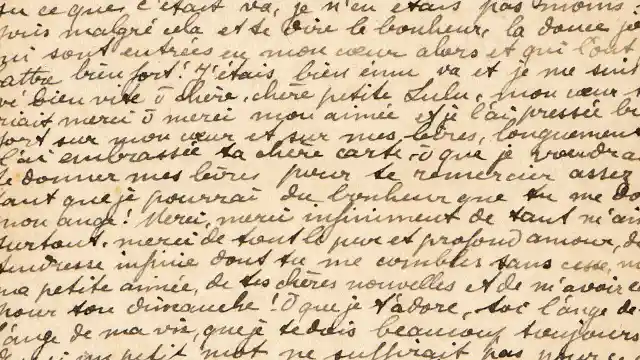 su ce que c'était va, je n'en étais pas moins
pris malgré cela et te dire le bonheur, la douce
qui sont entrées en mon cœur alors et qui l'ont
battre bien fort! J'étais bien ému va et je me suis
bien vite ô chère, chère petite Lulu, mon cœur
riait merci ô merci mon aimée et je l'ai pressée
fort sur mon cœur et sur mes lèvres, longuement
l'ai embrassée ta chère carte, ô que je voudrai
te donner mes lèvres pour te remercier assez
tant que je pourrai du bonheur que tu me do
mon ange! Merci, merci infiniment de tant m'ai
surtout, merci de tout le pur et profond amour, de
tendresse infinie dont tu me combles sans cesse,
ma petite aimée, de tes chères nouvelles et de m'avoir
pour ton dimanche! Ô que je t'adore, toi l'ange de
l'ange de ma vie, que je te dois beaucoup toujours
un petit mot ne suffirait pas pour